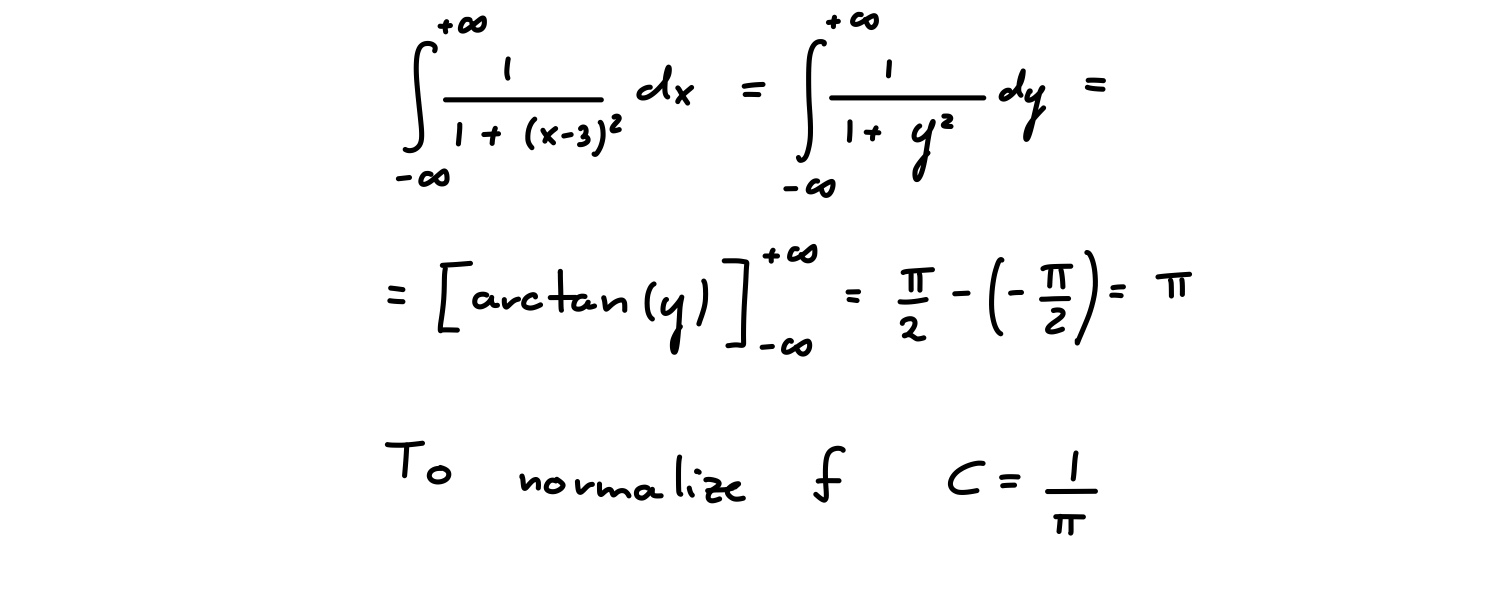 ∫_{-∞}^{+∞} 1/(1 + (x-3)²) dx = ∫_{-∞}^{+∞} 1/(1 + y²) dy =
= [arctan(y)]_{-∞}^{+∞} = π/2 - (-π/2) = π
To normalize f C = 1/π